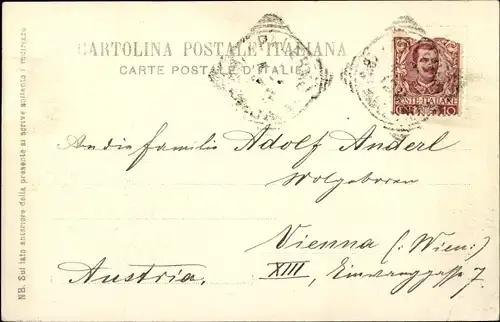 CARTOLINA POSTALE ITALIANA
CARTE POSTALE D'ITALIE
POSTE ITALIANE
10
An die Familie Adolf Anderl
Wolgeboren
Vienna (: Wien :)
XIII, Einwanggasse 7
Austria.
NB. Sul lato anteriore della presente si scrive soltanto l'indirizzo